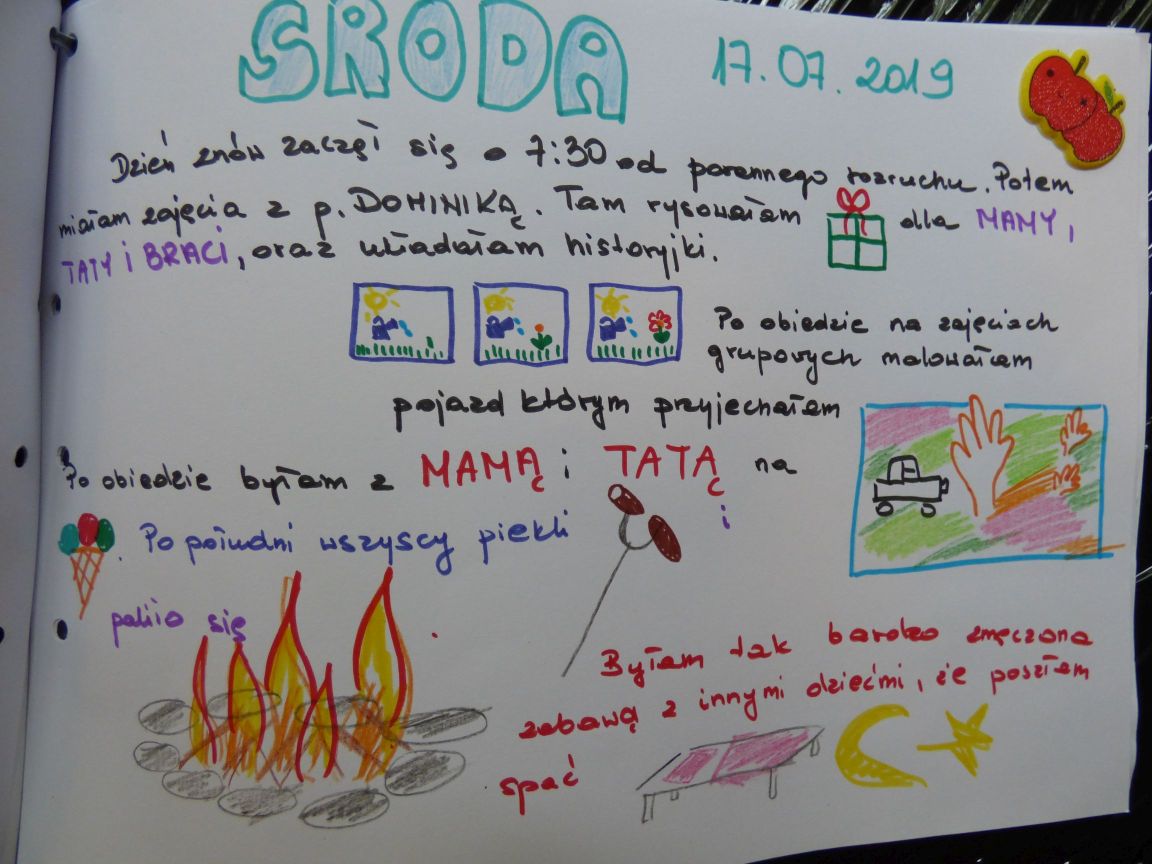 SRODA 17.07.2019
Dzień znów zaczęł się o 7:30 od porannego rozruchu. Potem
miałam zajęcia z p. DOMINIKĄ. Tam rysowałam dla MAMY,
TATY i BRACI, oraz układałam historyjki.
Po obiedzie na zajęciach
grupowych malowałam
pojazd którym przyjechałam
Po obiedzie byłam z MAMĄ i TATĄ na
. Po południ wszyscy piekli i
paliło się
Byłam tak bardzo zmęczona
zabawą z innymi dziećmi, że poszłam
spać